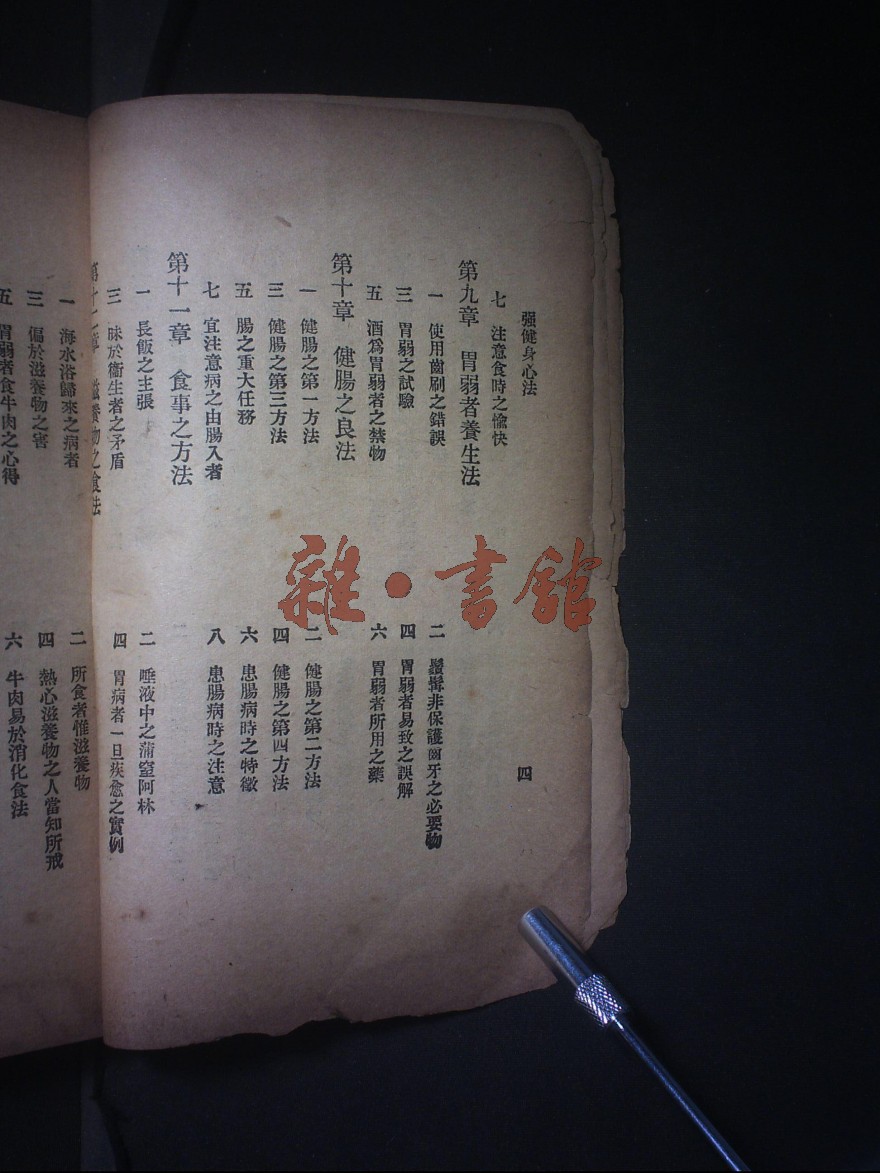 强健身心法
四
七 注意食時之愉快
第九章 胃弱者養生法
一 使用齒刷之錯誤
二 鬚髯非保護齒牙之必要物
三 胃弱之試驗
四 胃弱者易致之誤解
五 酒爲胃弱者之禁物
六 胃弱者所用之藥
第十章 健腸之良法
一 健腸之第一方法
二 健腸之第二方法
三 健腸之第三方法
四 健腸之第四方法
五 腸之重大任務
六 患腸病時之特徵
七 宜注意病之由腸入者
八 患腸病時之注意
第十一章 食事之方法
一 長飯之主張
二 唾液中之蒲窒阿林
三 昧於衞生者之矛盾
四 胃病者一旦疾愈之實例
第十二章 滋養物之食法
一 海水浴歸來之病者
二 所食者惟滋養物
三 偏於滋養物之害
四 熱心滋養物之人當知所戒
五 胃弱者食牛肉之心得
六 牛肉易於消化食法
雜·書館